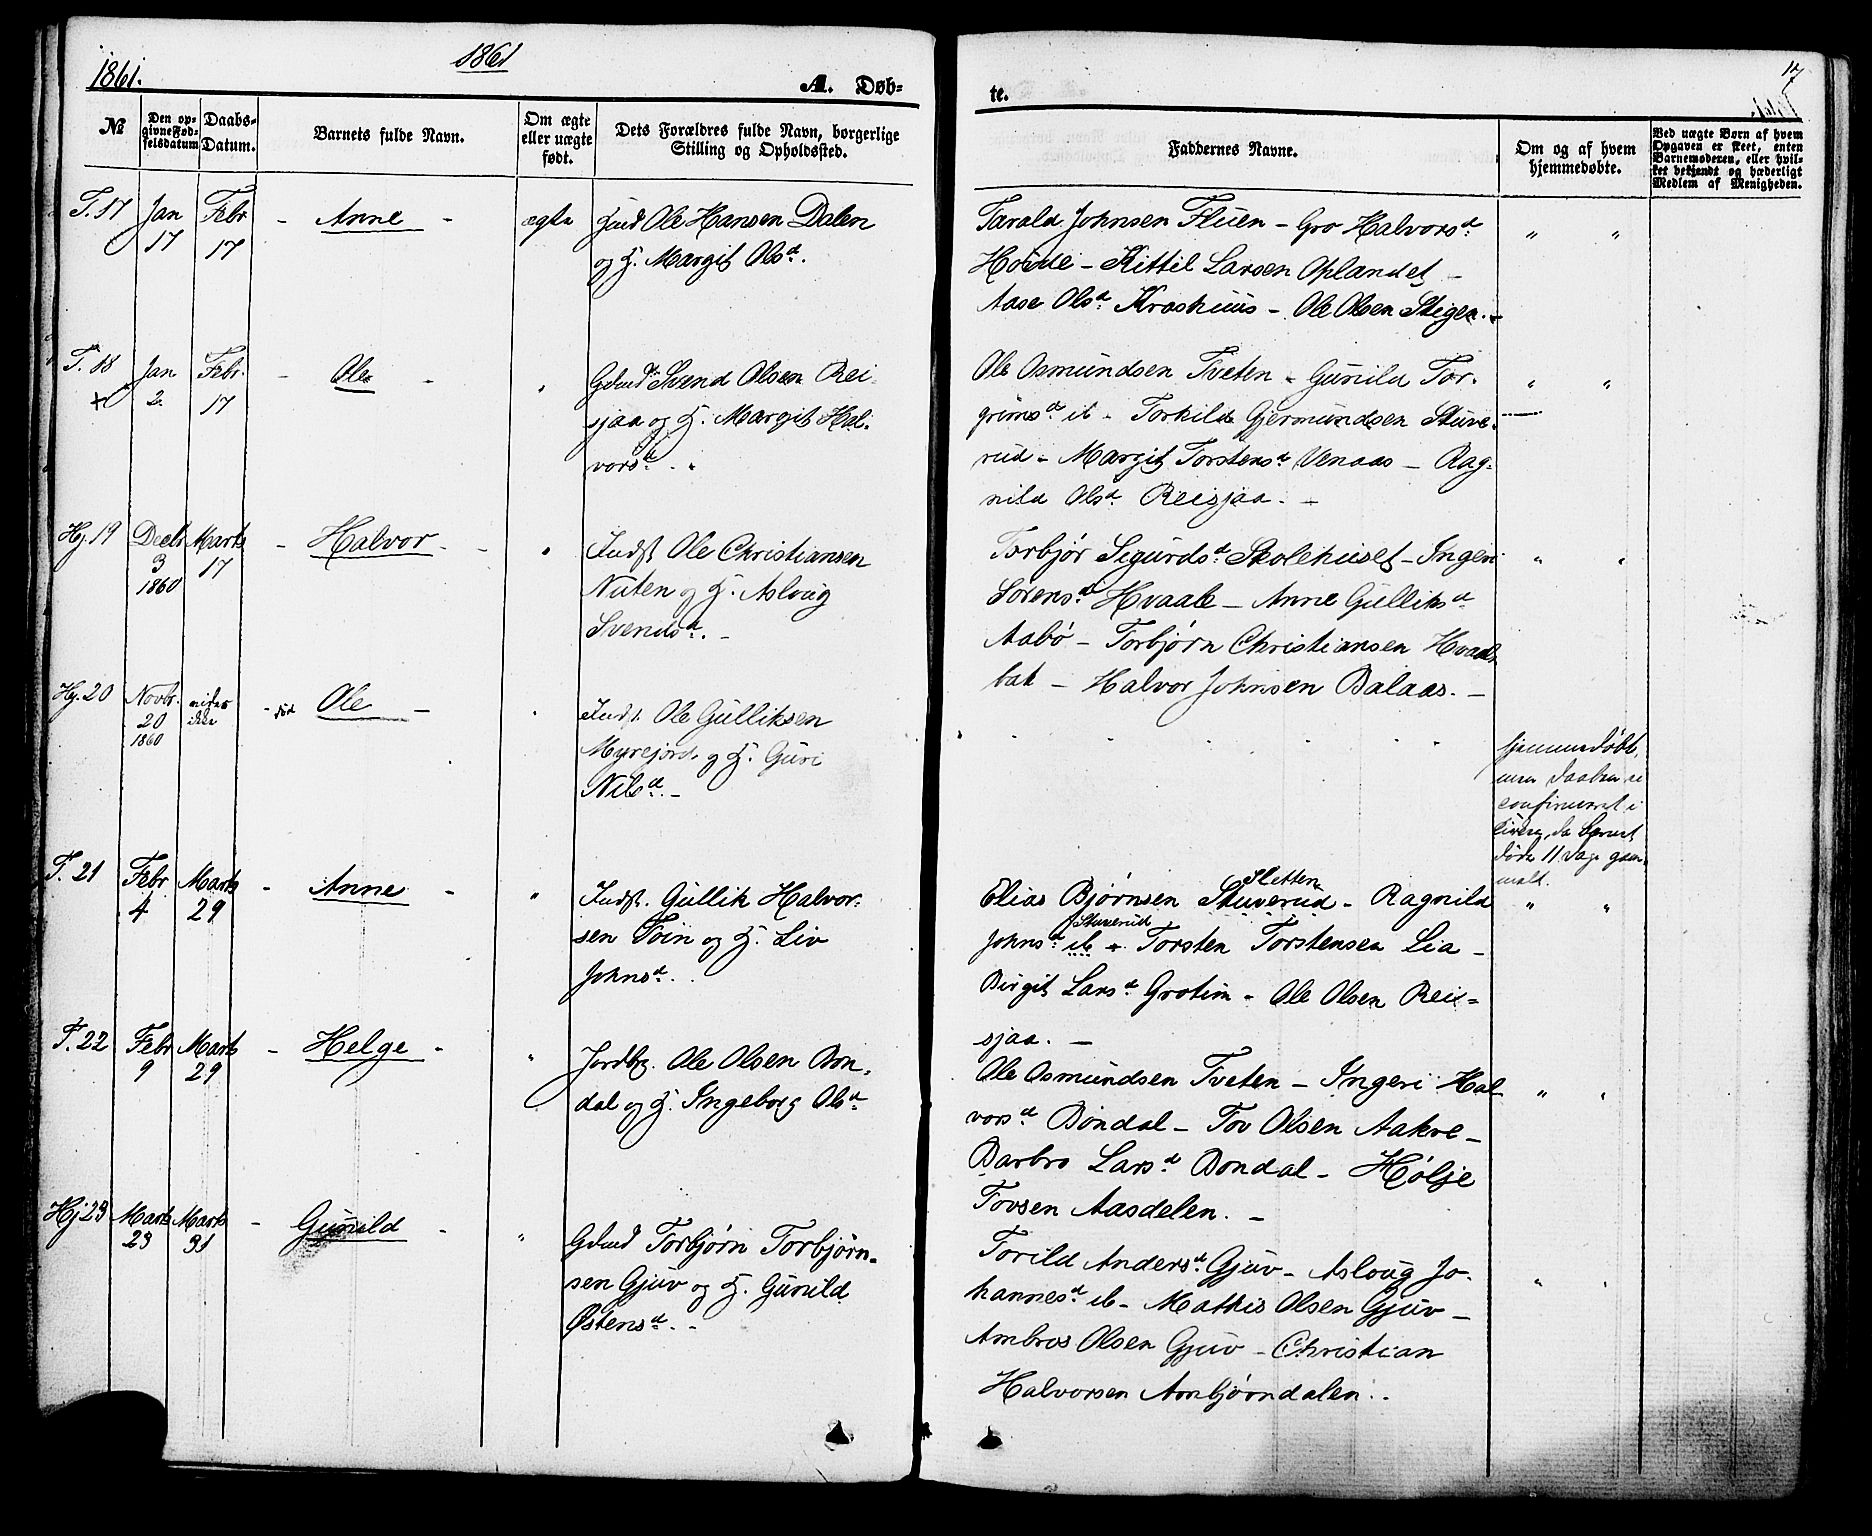 1861.
1861
A. Døb=
te.
17
№
Den op-
givne Fød-
selsdatum
Daabs-
Datum.
Barnets fulde Navn.
Om ægte
eller uægte
født.
Dets Forældres fulde Navn, borgerlige
Stilling og Opholdssted.
Faddernes Navne.
Om og af hvem
hjemmedøbte.
Ved uægte Børn af hvem
Opgaven er skeet, enten
Barnemoderen, eller hvil-
ket bekjendt og hæderligt
Medlem af Menigheden.
T. 17
Jan
17
Febr
17
- Anne -
ægte
Ole Hansen Dalen
og H. Margit Olsd.
Tarald Johnsen Fluen - Gro Halvorsd.
Hovde - Kittil Larsen Oplandet -
Aase Olsd. Kroshuus - Ole Olsen Stigen. -
" "
T. 18
+
Jan
2.
Febr.
17
- Ole -
"
Gdmd Svend Olsen Rei-
sjaa og H. Margit Hal-
vorsd. - "
Ole Osmundsen Tveten - Gunild Tor-
grimsd. ib - Torkild Gjermundsen Stuve-
rud - Margit Torstensd. Venaas - Rag-
nild Olsd. Reisjaa. -
" "
Hj. 19
Decbr
3
1860
Marts
17
- Halvor -
"
Indst Ole Christiansen
Nuten og H. Asloug
Svendsd. -
Torbjør Sigurdsd. Skolehuset - Ingeri
Sørensd. Hvaale - Anne Gulliksd.
Aabø - Torbjørn Christiansen Hvaale-
bak - Halvor Johnsen Balaas. -
" "
Hj. 20
Novbr.
20
1860
- død Ole -
"
Indst. Ole Gulliksen
Myrejord og H. Guri
Nilsd. -
hjemmedøbt,
men Daaben ei
confirmeret i
Kirken, da Barnet
døde 11 Dage gam-
malt.
T. 21
Febr
4
Marts
29
- Anne -
"
Indst. Gullik Halvor-
sen Foin og H. Liv
Johnsd. -
Sletten
Elias Bjørnsen Stuverud - Ragnild
Stuverud
Johnsd. ib - Torsten Torstensen Lia -
Birgit Larsd. Grotim - Ole Olsen Rei=
sjaa. -
" "
T. 22
Febr
9
Marts
29
- Helge -
"
Jordbr. Ole Olsen Bon-
dal og H. Ingeborg Olsd.
Ole Osmundsen Tveten - Ingeri Hal-
vorsd. Bondal - Tov Olsen Aakre -
Barbro Larsd. Bondal - Hølje
Tovsen Aasdelen. -
" "
Hj 23
Marts
23
Marts
31
- Gunild -
"
Gdmd Torbjørn Torbjørn-
sen Gjuv og H. Gunild
Østensd. -
Torild Andersd. Gjuv - Asloug Jo-
hannesd. ib - Mathis Olsen Gjuv -
Ambros Olsen Gjuv - Christian
Halvorsen Ambjørndalen. -
" "